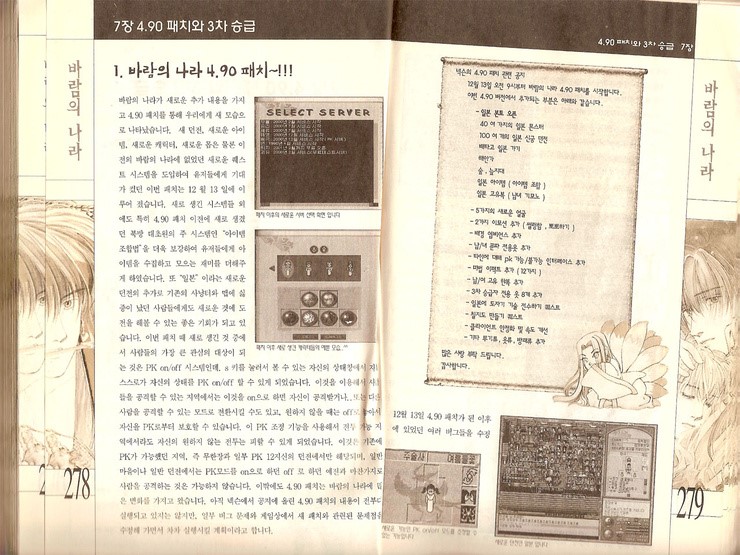 7장 4.90 패치와 3차 승급
바람의 나라
1. 바람의 나라 4.90 패치~!!!
바람의 나라가 새로운 추가 내용을 가지
고 4.90 패치를 통해 우리에게 새 모습으
로 나타났습니다. 새 던전, 새로운 아이
템, 새로운 캐릭터, 새로운 몹은 물론 이
전의 바람의 나라에 없었던 새로운 퀘스
트 시스템을 도입하여 유저들에게 기대
가 컸던 이번 패치는 12월 13일에 이
루어 졌습니다. 새로 생긴 시스템들 외
에도 특히 4.90 패치 이전에 새로 생겼
던 북방 대초원의 주 시스템인 "아이템
조합법"을 더욱 보강하여 유저들에게 아
이템을 수집하고 모으는 재미를 더해주
게 하였습니다. 또 "일본" 이라는 새로운
던전의 추가로 기존의 사냥터와 맵에 싫
증이 났던 사람들에게도 새로운 것에 도
전을 해볼 수 있는 좋은 기회가 되고 있
습니다. 이번 패치 때 새로 생긴 것 중에
서 사람들의 가장 큰 관심의 대상이 되
는 것은 PK on/off 시스템인데, s 키를 눌러서 볼 수 있는 자신의 상태창에서
스스로가 자신의 상태를 PK on/off 할 수 있게 되었습니다. 이것을 이용해서
들을 공격할 수 있는 지역에서는 이것을 on으로 하면 자신이 공격받거나, 또는
사람을 공격할 수 있는 모드로 전환시킬 수도 있고, 원하지 않을 때는 off로
자신을 PK로부터 보호할 수 있습니다. 이 PK 조정 기능을 사용해서 전투 가능 지
역에서라도 자신의 원하지 않는 전투는 피할 수 있게 되었습니다. 이것은 기존에
PK가 가능했던 지역, 즉 무한장과 일부 PK 12지신의 던전에서만 해당되며, 일반
마을이나 일반 던전에서는 PK모드를 on으로 하던 off 로 하던 예전과 마찬가지로
사람을 공격하는 것은 가능하지 않습니다. 이밖에도 4.90 패치는 바람의 나라에 많
은 변화를 가져고 왔습니다. 아직 넥슨에서 공지에 올린 4.90 패치의 내용이 전부
실행되고 있지는 않지만, 일부 버그 문제와 게임상에서 새 패치와 관련된 문제점
수정해 가면서 차차 실행시킬 계획이라고 합니다.
SELECT SERVER
패치 이후의 새로운 서버 선택 화면 입니다
패치 이후 새로 생긴 캐릭터들의 예쁜 모습..^^
278
4.90 패치와 3차 승급 7장
바람의 나라
넥슨의 4.90 패치 관련 공지
12월 13일 오전 9시부터 바람의 나라 4.90 패치를 시작합니다.
이번 4.90 버전에서 추가되는 부분은 아래와 같습니다.
- 일본 본토 오픈
40 여 가지의 일본 몬스터
100 여 개의 일본 신규 던전
배타고 일본 가기
해안가
숲, 늪지대
일본 아이템 (아이템 조합)
일본 고유복 (남녀 기모노)
- 5가지의 새로운 얼굴
- 2가지 이모션 추가 (썰렁함, 뽀뽀하기)
- 배경 엠비언스 추가
- 남/녀 문파 전용옷 추가
- 타인에 대해 pk 가능/불가능 인터페이스 추가
- 마법 이펙트 추가 (12가지)
- 남/여 고유 한복 추가
- 3차 승급자 전용 옷 8개 추가
- 일본에 도자기 기술 전수하기 퀘스트
- 칠지도 만들기 퀘스트
- 클라이언트 안정화 및 속도 개선
- 기타 무기류, 옷류, 방패류 추가
많은 사랑 부탁 드립니다.
감사합니다.
12월 13일 4.90 패치가 된 이후
에 있었던 여러 버그들을 수정
주술사
새로운 기능인 PK on/off 모드를 조정할 수
있는 기능입니다
새로운 던전인 일본 입니다
279